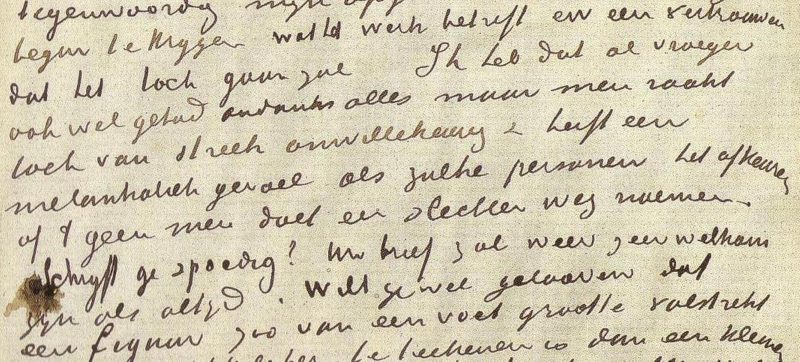 tegenwoordig mijn
begin te krijgen wat het werk betreft en een vertrouwen
dat het toch gaan zal Ik heb dat al vroeger
ook wel gehad ondanks alles maar men raakt
toch van streek onwillekeurig & heeft een
melankoliek gevoel als zulke personen het afkeuren
of 't geen men doet een slechten weg noemen.
Schrijft ge spoedig? Uw brief zal weer zeer welkom
zijn als altijd. Wilt ge wel gelooven dat
een figuur zoo van een voet grootte volstrekt
te teekenen is dan een kleiner